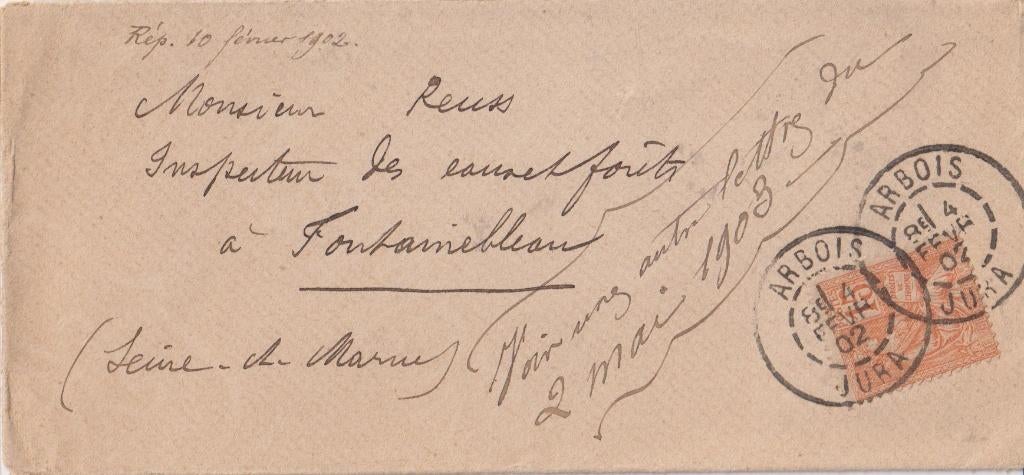 Rép. 10 février 1902.
Monsieur Reuss
Inspecteur des eaux et forêts
à Fontainebleau
(Seine-et-Marne)
Voir une autre lettre du
2 mai 1903
ARBOIS
4
FEVR
02
JURA
ARBOIS
4
FEVR
02
JURA